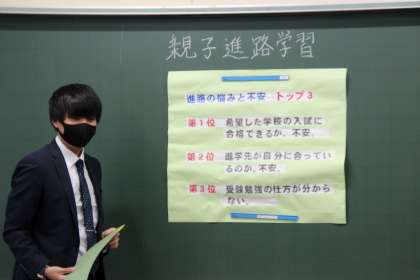 親子進路学習
進路の悩みと不安 トップ3
第1位 希望した学校の入試に
合格できるか、不安。
第2位 進学先が自分に合ってい
るのか、不安。
第3位 受験勉強の仕方が分から
ない。